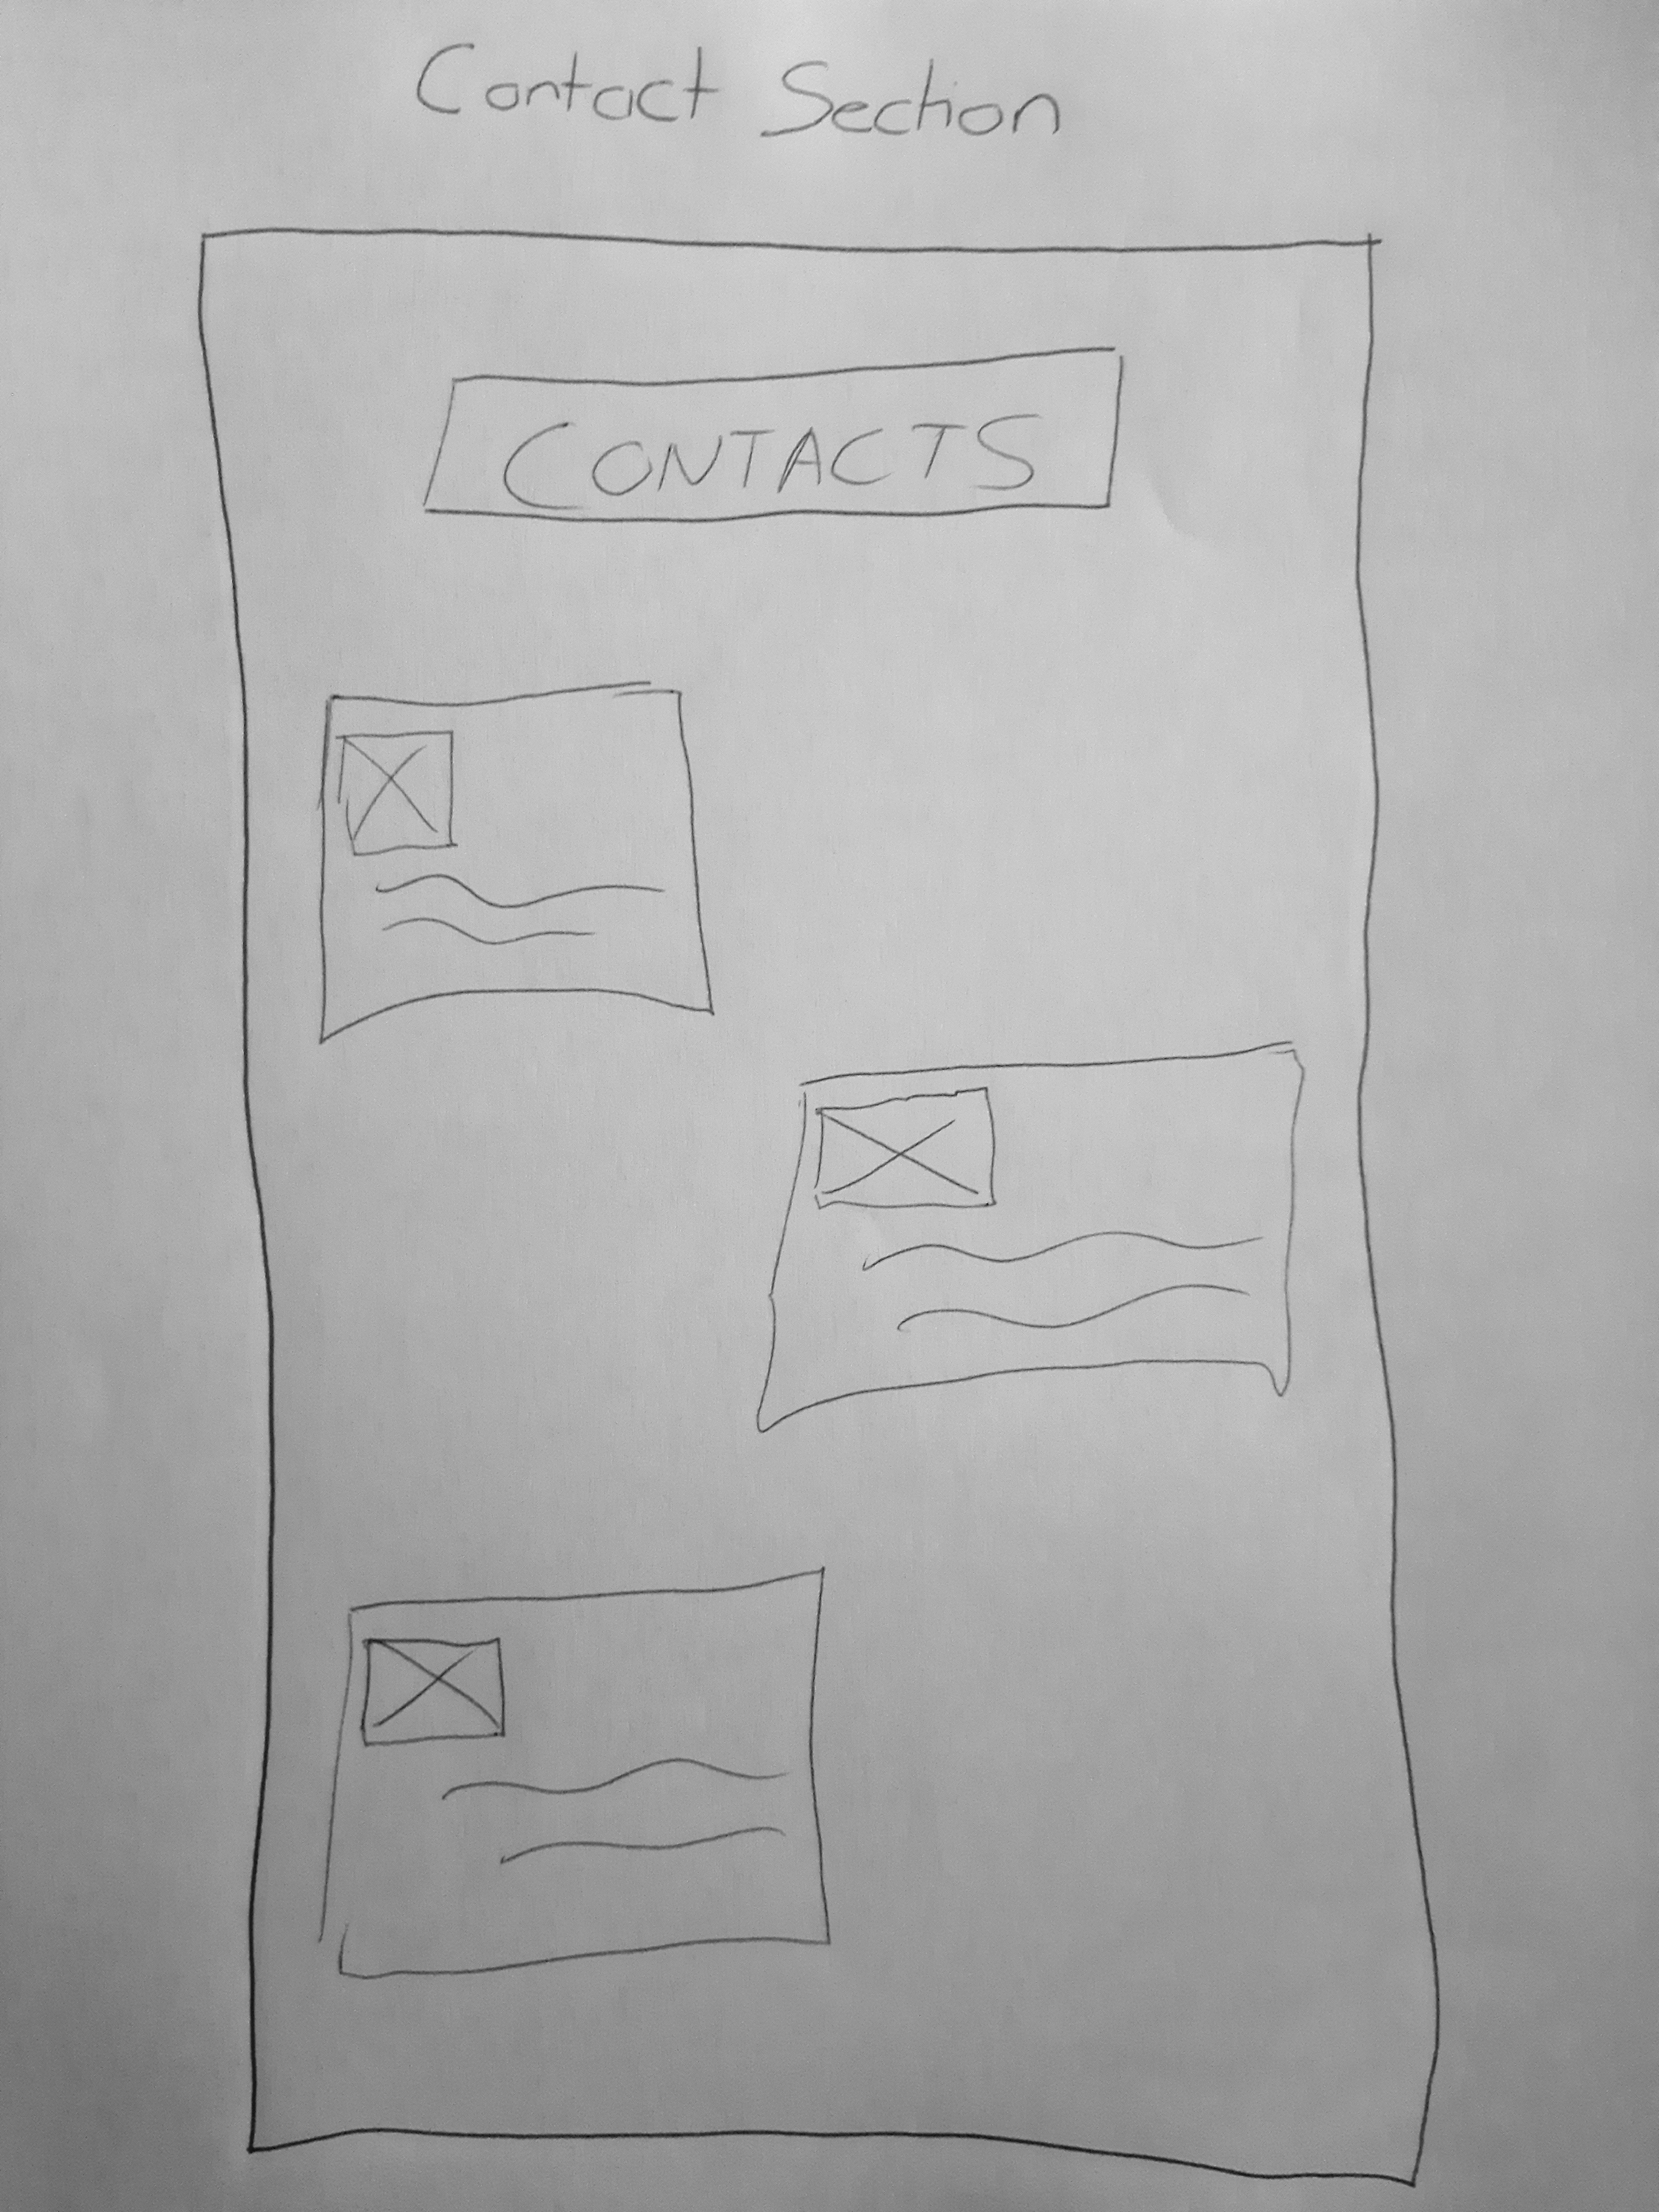 Contact Section
CONTACTS